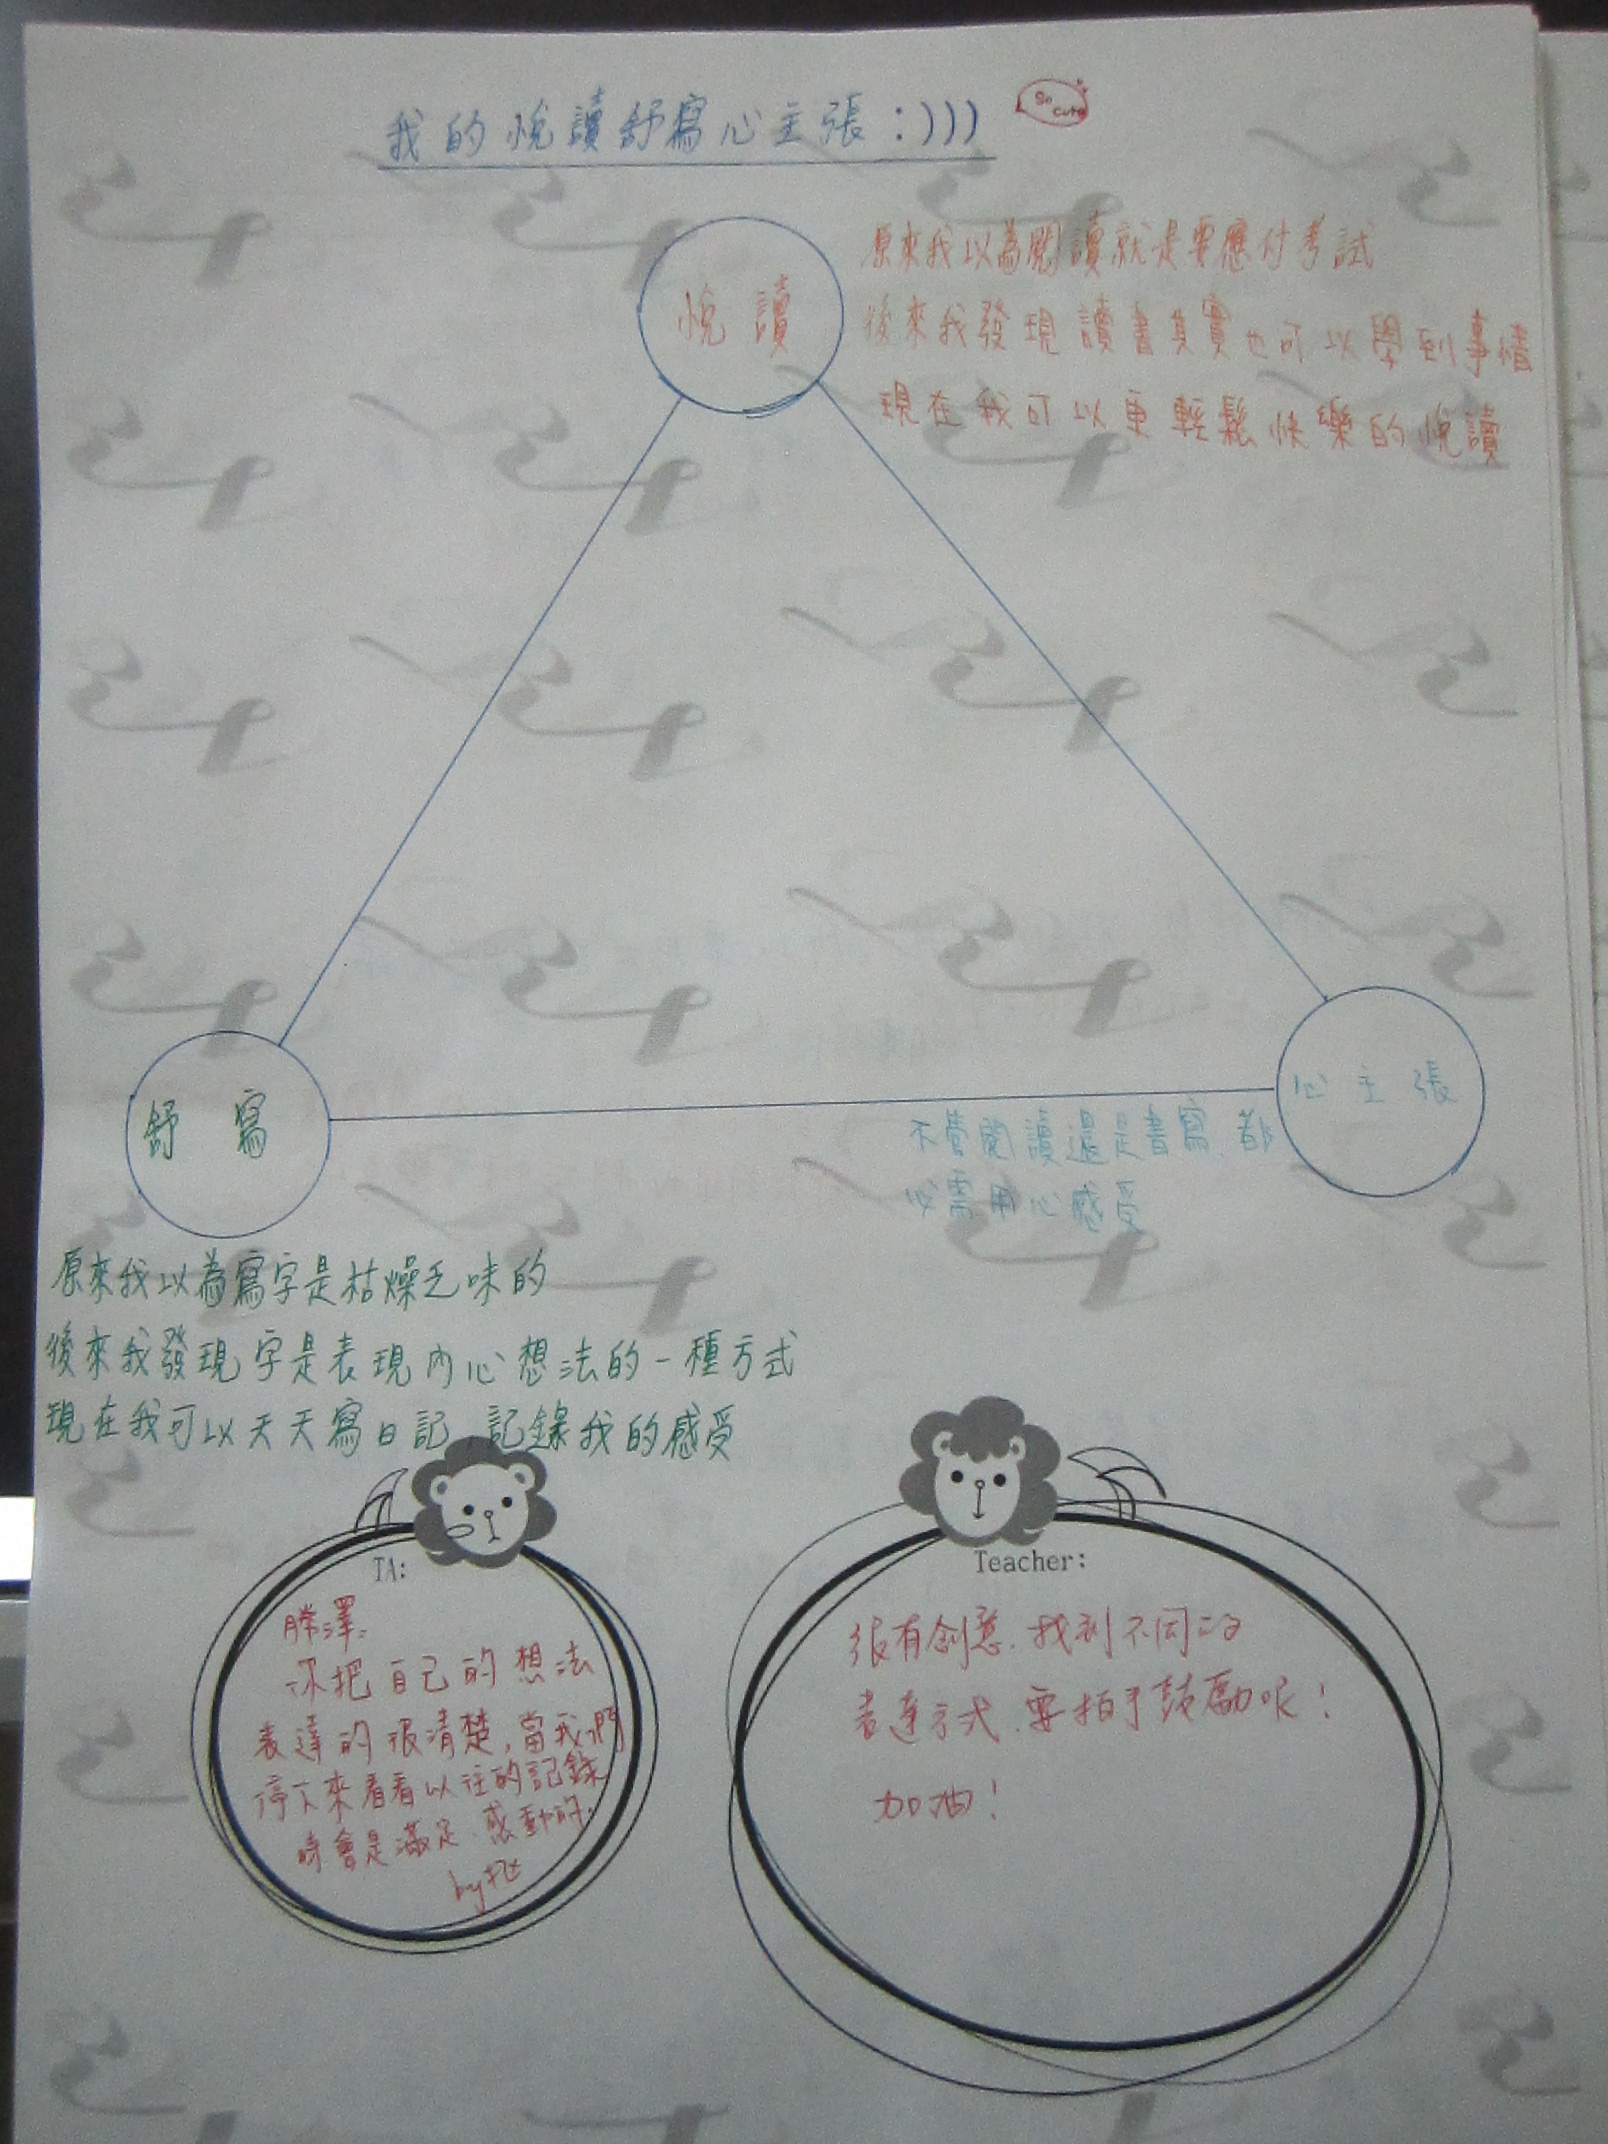 我的悅讀舒寫心主張:)))
So cute
悅讀
原來我以為閱讀就是要應付考試
後來我發現讀書其實也可以學到事情
現在我可以更輕鬆快樂的悅讀
心主張
不管閱讀還是書寫、都
必需用心感受
舒寫
原來我以為寫字是枯燥乏味的
後來我發現字是表現內心想法的一種方式
現在我可以天天寫日記,記錄我的感受
TA:
澤:
你把自己的想法
表達的很清楚,當我們
停下來看看以往的記錄
時會是滿足、感動的。
by
Teacher:
很有創意、找到不同的
表達方式、要拍手鼓勵呢!
加油!